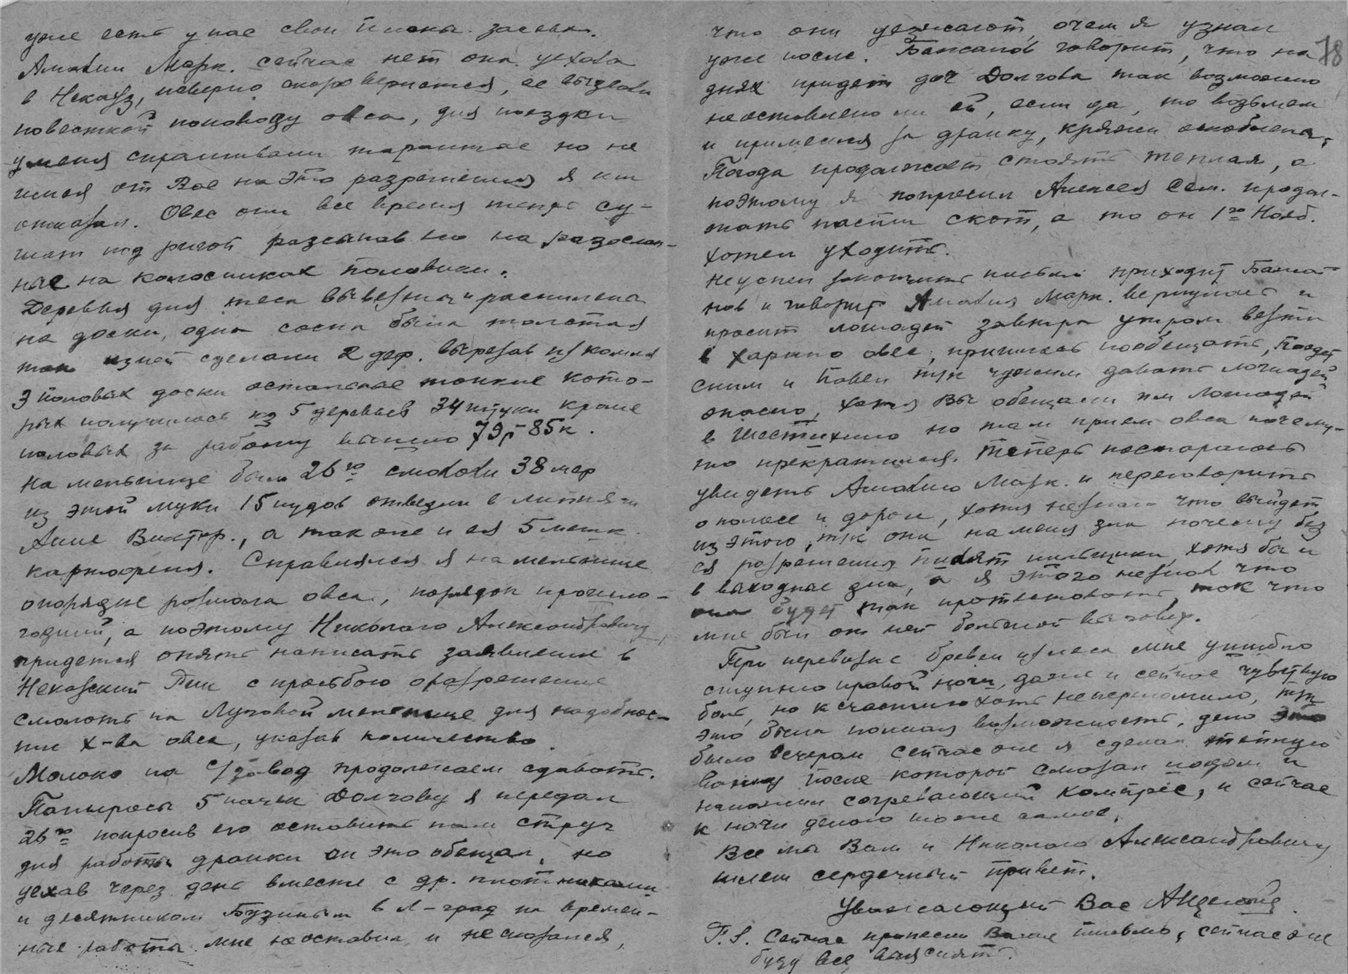 уже есть у нас свои планы засева.
Амалии Марк. сейчас нет она уехала
в Некоуз, наверно скоро вернется, ее вызвали
повесткой поповоду овса, для поездки
уменя спрашивали тарантас но не
имея от Вас на это разрешения я им
отказал. Овес они все время теперь су-
шат под ригой разсыпав его на разослан-
ные на колосниках половики.
Деревья для теса вывезены и распилены
на доски, одна сосна была толстая
так изней сделали 2 дер. вырезав из комля
3 половых доски остальные тонкие кото-
рых получилось из 5 деревьев 34 штуки кроме
половых за работу вышло 79р-85к.
На мельнице были 26го смололи 38 мер
из этой муки 15 пудов отвезли в
Анне Виктор., а также и ея 5 мешк.
картофеля. Справлялся я на мельнице
опорядке размола овса, порядок прошло-
годний, а поэтому Николаю Александровичу
придется опять написать заявление в
Некоузский Рик с просьбою оразрешении
смолоть на Луговой мельнице для надобнос-
ти х-ва овса, указав количество.
Молоко на с/завод продолжаем сдавать.
Папиросы 5 пачек Долгову я передал
26го попросив его оставить нам струг
для работы дранки он это обещал, но
уехав через день вместе с др. плотниками
и десятником Бузиным в Л-град на времен-
ные работы мне неоставил и не сказался,
78
что они уезжают, очем я узнал
уже после. Бажанов говорит, что на
днях придет доч Долгова так возможно
неоставлено ли ей, если да, то возьмем
и примемся за дранку, кряжи
Погода продолжает стоять теплая, а
поэтому я попросил Алексея Сем. продол-
жать пасти скот, а то он 1го Нояб.
хотел уходить.
Неуспел закончить письмо приходит Бажа-
нов и говорит Амалия Марк. вернулась и
просит лошадей завтра утром везти
в Харино овес, пришлось пообещать, поедет
сним и Павел т/к чужим давать лошадей
опасно, хотя Вы обещали им лошадей
в Шестихино но там прием овса почему-
то прекратился. Теперь постараюсь
увидеть Амалию Марк. и переговорить
о полосе и дороге, хотя незнаю что выйдет
из этого, т/к она на меня зла почему без
ея разрешения пилят пильщики, хотя бы и
в выходные дни, а я этого незнал что
она будет так протестовать, так что
мне был от ней большой выговор.
При перевозке бревен из леса мне ушибло
ступню правой ноги, даже и сейчас чувствую
боль, но к счастию хоть непереломило, т/к
это была полная возможность, дело это
было вечером сейчас же я сделал теплую
ванну после которой смазал иодом и
наложил согревающий компрес, и сейчас
к ночи делаю тоже самое.
Все мы Вам и Николаю Александровичу
шлем сердечный привет.
Уважающий Вас
P.S. Сейчас принесли Ваше письмо, сейчас же
буду все выяснять.